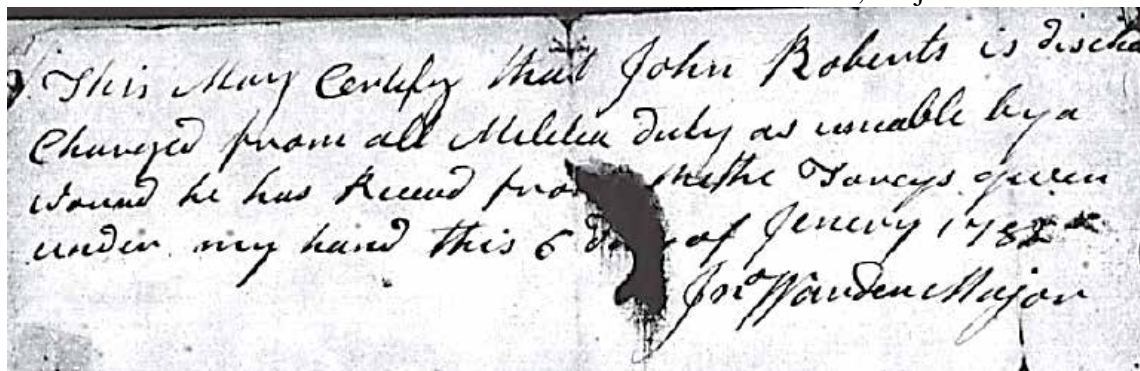 This May Certify that John Roberts is discha
Charged from all Militia duty as unable by a
wound he has Receivd from the Toreys given
under my hand this 6 day of Jenery 1782
Jno Warden Major